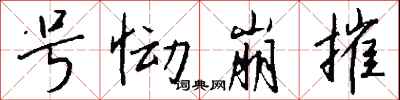 号恸崩摧
词典网